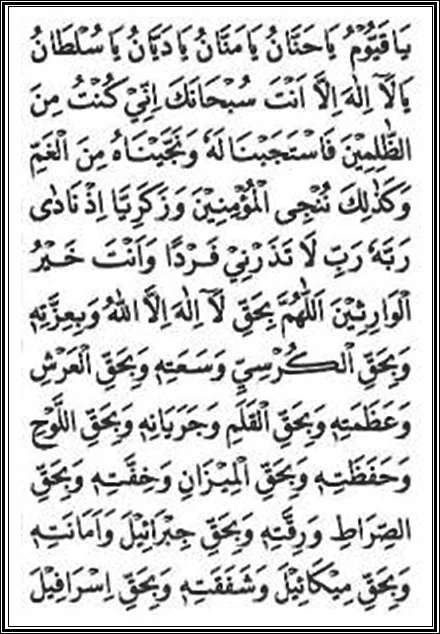 يَا قَيُّوْمُ يَا حَنَّانُ يَا مَنَّانُ يَا دَيَّانُ يَا سُلْطَانُ
يَا لَآ اِلٰهَ اِلَّا اَنْتَ سُبْحَانَكَ اِنِّيْ كُنْتُ مِنَ
الظّٰلِمِيْنَ فَاسْتَجَبْنَا لَهٗ وَنَجَّيْنَاهُ مِنَ الْغَمِّ
وَكَذٰلِكَ نُنْجِى الْمُؤْمِنِيْنَ وَزَكَرِيَّا اِذْ نَادٰى
رَبَّهٗ رَبِّ لَا تَذَرْنِيْ فَرْدًا وَاَنْتَ خَيْرُ
الْوَارِثِيْنَ اَللّٰهُمَّ بِحَقِّ لَآ اِلٰهَ اِلَّا اللّٰهُ وَبِعِزَّتِهٖ
وَبِحَقِّ الْكُرْسِيِّ وَسَعَتِهٖ وَبِحَقِّ الْعَرْشِ
وَعَظَمَتِهٖ وَبِحَقِّ الْقَلَمِ وَجَرَيَانِهٖ وَبِحَقِّ اللَّوْحِ
وَحَفَظَتِهٖ وَبِحَقِّ الْمِيْزَانِ وَخِفَّتِهٖ وَبِحَقِّ
الصِّرَاطِ وَرِقَّتِهٖ وَبِحَقِّ جِبْرَائِيْلَ وَاَمَانَتِهٖ
وَبِحَقِّ مِيْكَائِيْلَ وَشَفَقَتِهٖ وَبِحَقِّ اِسْرَافِيْلَ